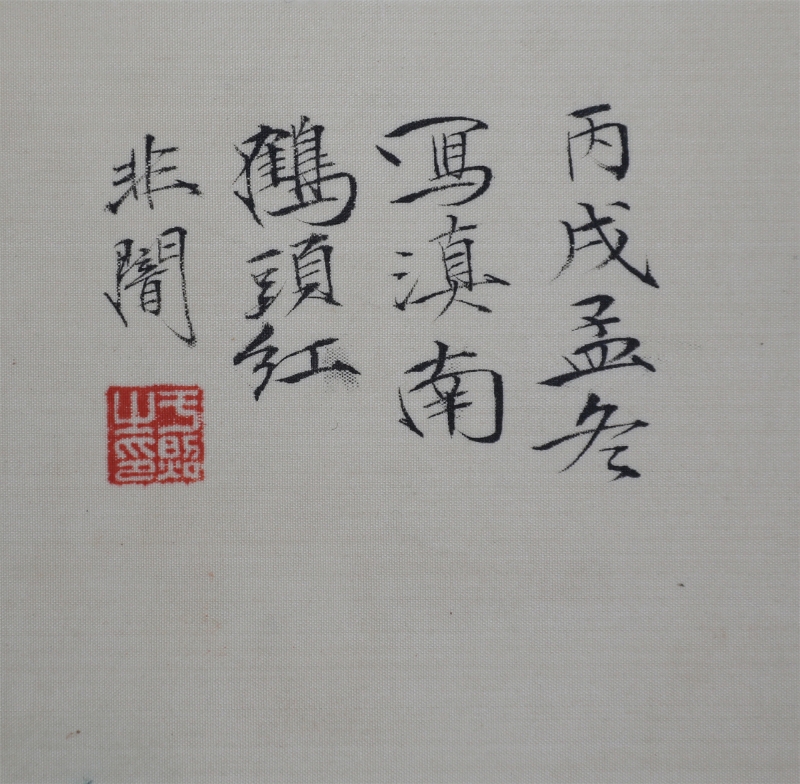 丙戌孟冬
寫滇南
鶴頭紅
非闇
于照之印